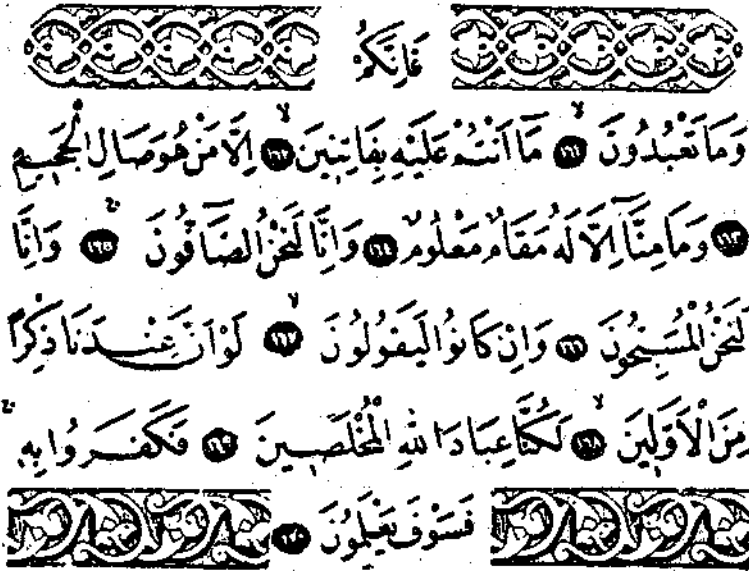 فَاِنَّكُمْ
وَمَا تَعْبُدُونَ ﴿١٦١﴾ مَٓا اَنْتُمْ عَلَيْهِ بِفَاتِنِينَ ﴿١٦٢﴾ اِلَّا مَنْ هُوَ صَالِ الْجَحِيمِ
﴿١٦٣﴾ وَمَا مِنَّٓا اِلَّا لَهُ مَقَامٌ مَعْلُومٌ ﴿١٦٤﴾ وَاِنَّا لَنَحْنُ الصَّٓافُّونَ ﴿١٦٥﴾ وَاِنَّا
لَنَحْنُ الْمُسَبِّحُونَ ﴿١٦٦﴾ وَاِنْ كَانُوا لَيَقُولُونَ ﴿١٦٧﴾ لَوْ اَنَّ عِنْدَنَا ذِكْرًا
مِنَ الْاَوَّلِينَ ﴿١٦٨﴾ لَكُنَّا عِبَادَ اللهِ الْمُخْلَصِينَ ﴿١٦٩﴾ فَكَفَرُوا بِهِ
فَسَوْفَ يَعْلَمُونَ ﴿١٧٠﴾